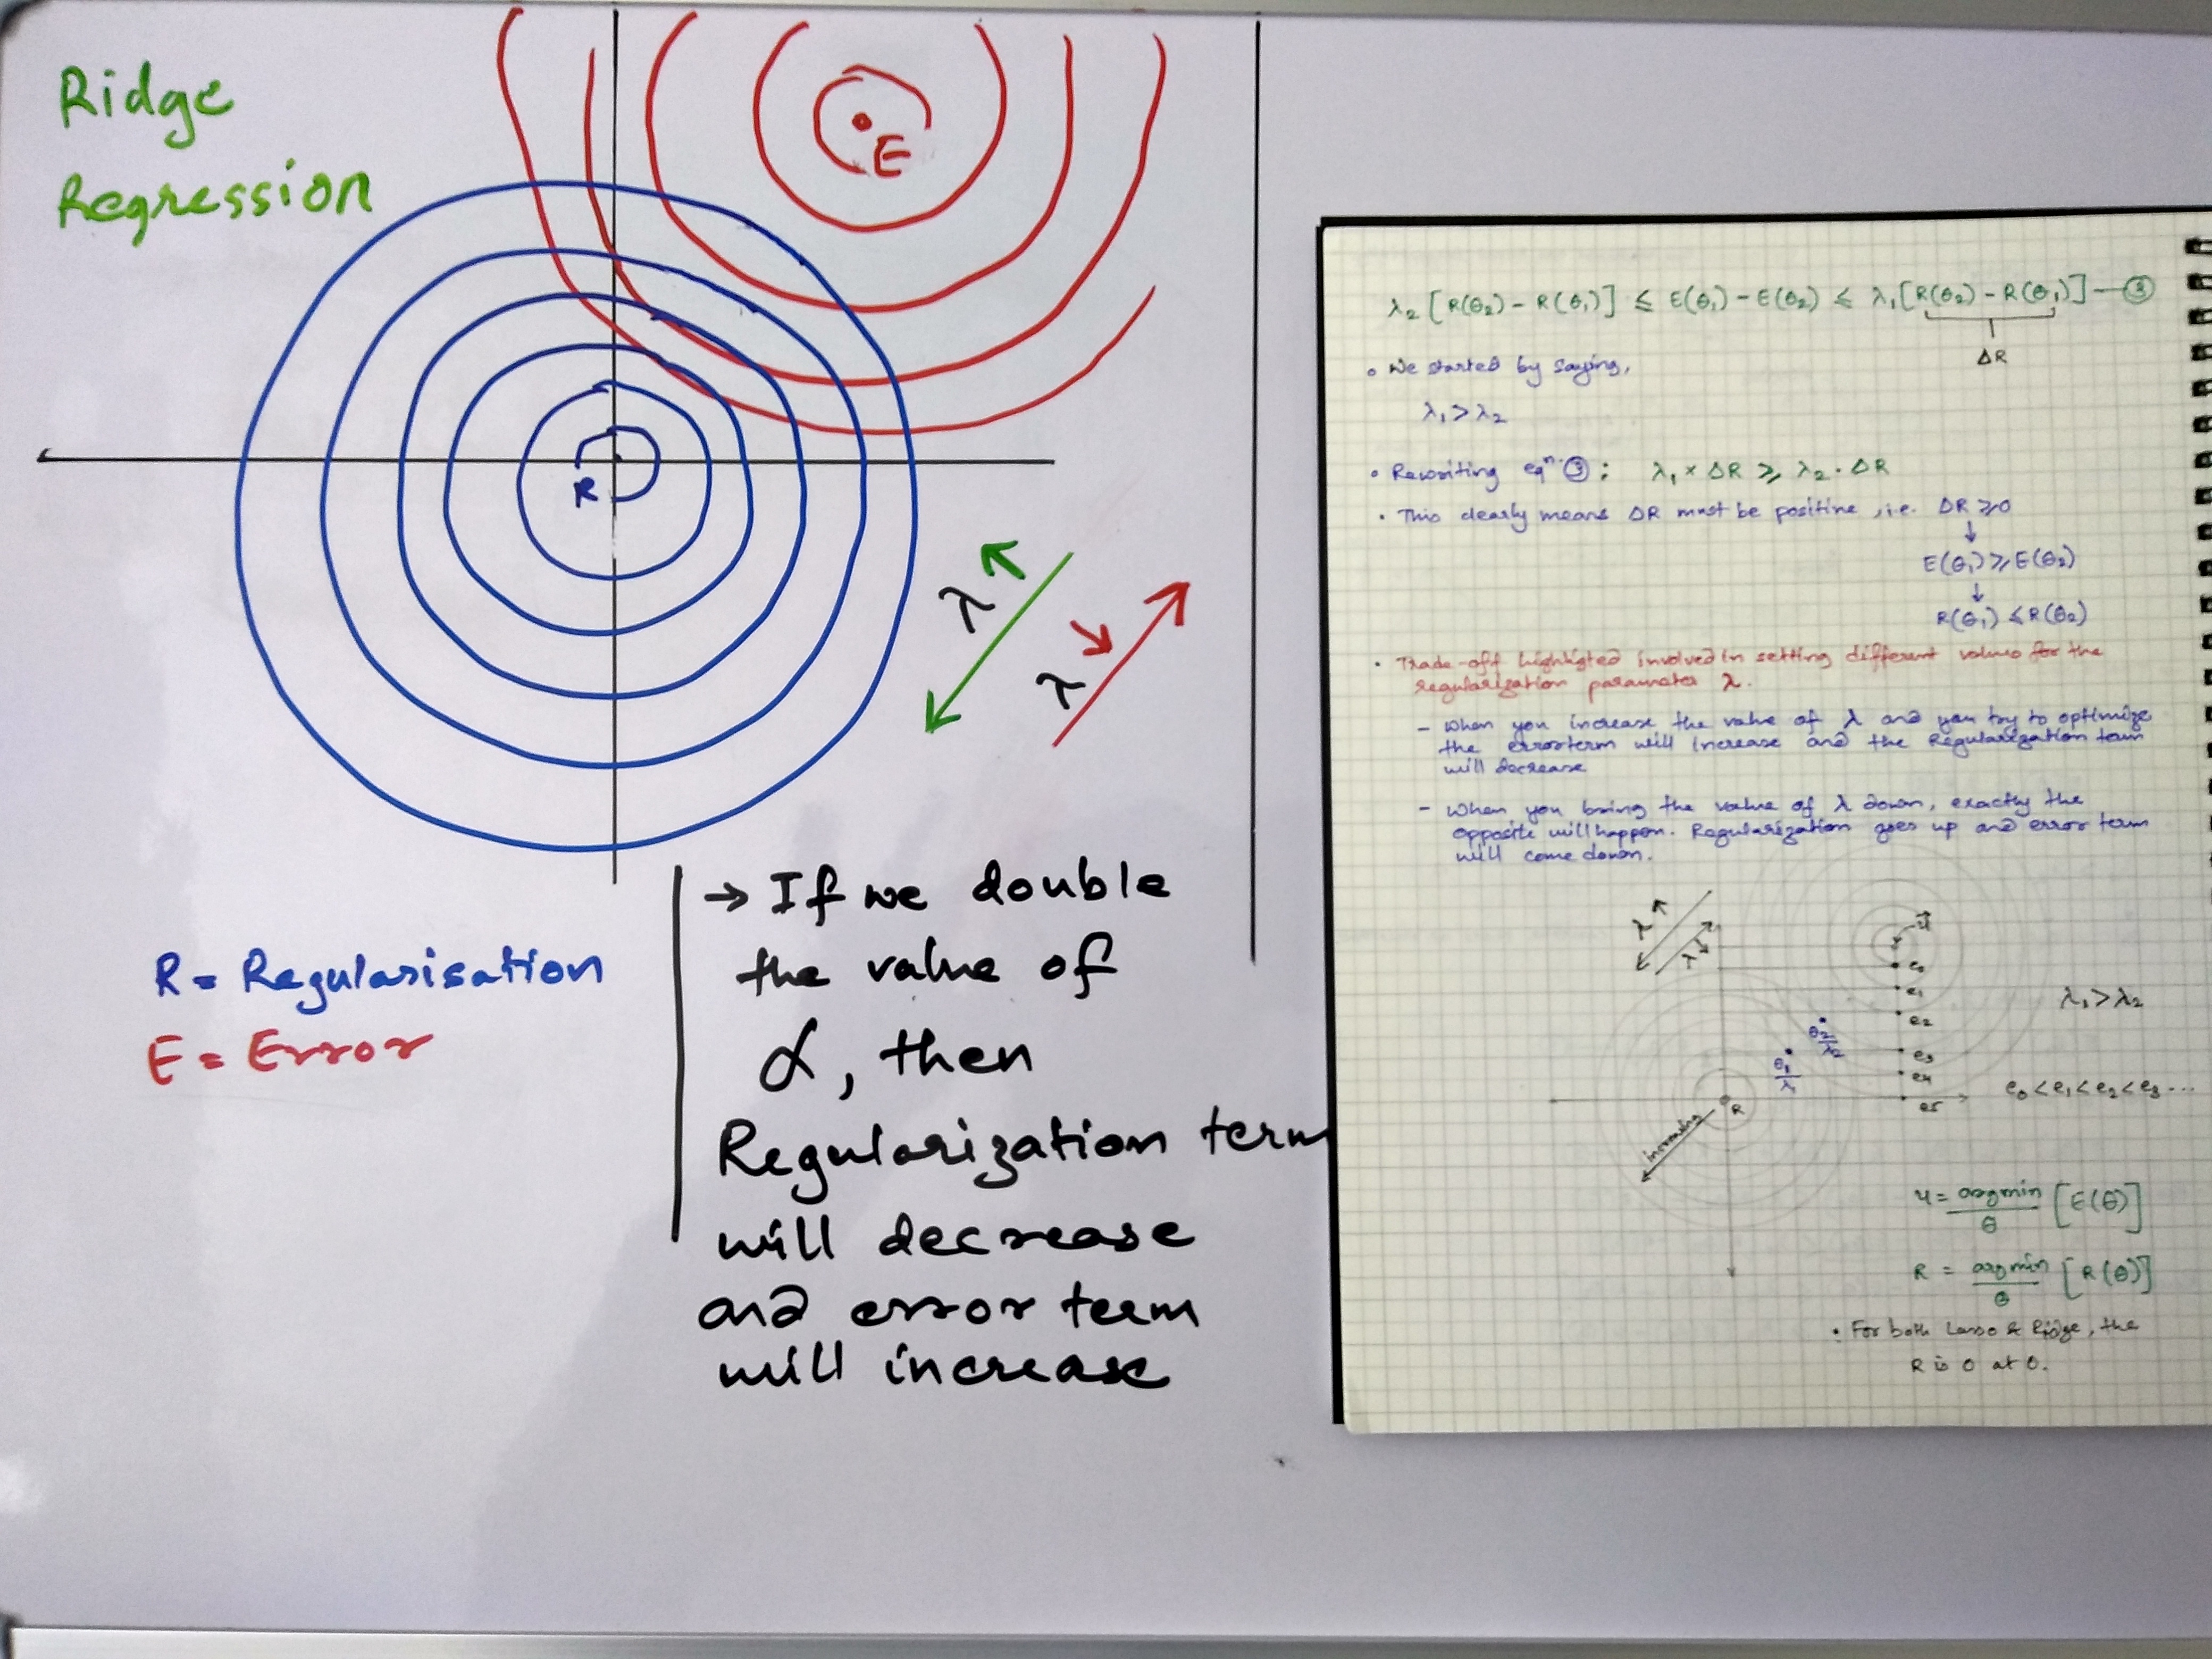 Ridge
Regression
E
R
λ ↑
λ ↓
R = Regularisation
E = Error
→ If we double
the value of
α, then
Regularization term
will decrease
and error term
will increase
λ₂ [R(θ₂) - R(θ₁)] ≤ E(θ₁) - E(θ₂) ≤ λ₁ [R(θ₂) - R(θ₁)] — ③
ΔR
• We started by saying,
λ₁ > λ₂
• Rewriting eqⁿ ③ : λ₁ × ΔR ≥ λ₂ · ΔR
• This clearly means ΔR must be positive, i.e. ΔR ≥ 0
↓
E(θ₁) ≥ E(θ₂)
↓
R(θ₁) ≤ R(θ₂)
• Trade-off highligted involved in setting different values for the
regularization parameter λ.
- When you increase the value of λ and you try to optimize
the error term will increase and the Regularization term
will decrease
- When you bring the value of λ down, exactly the
opposite will happen. Regularization goes up and error term
will come down.
λ ↑
λ ↓
e₀
e₁
e₂
e₃
e₄
e₅
θ₂
λ₂
θ₁
λ₁
R
λ₁ > λ₂
e₀ < e₁ < e₂ < e₃ ...
u = argmin [E(θ)]
θ
R = argmin [R(θ)]
θ
• For both Lasso & Ridge, the
R is 0 at 0.